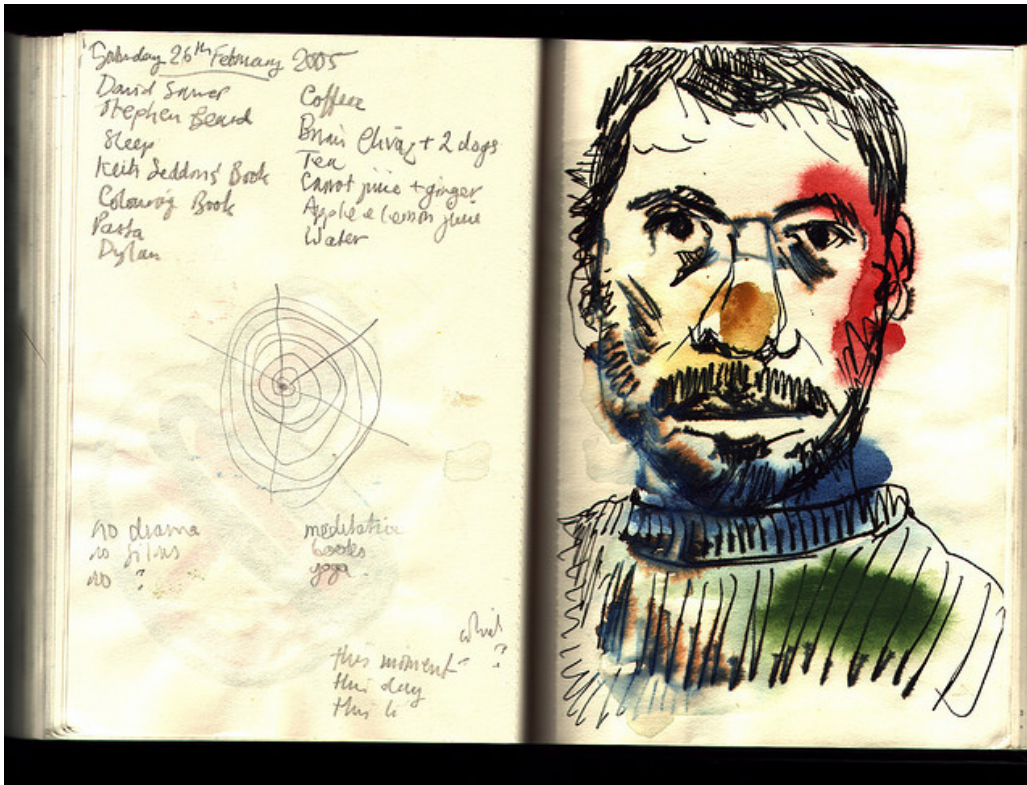 Saturday 26th February 2005
David
Stephen Beard
Sleep
Keith Seddons' Book
Colouring Book
Pasta
Dylan
Coffee
Brian + 2 dogs
Tea
Carrot juice + ginger
Apple & lemon juice
Water
no drama
no films
no ?
meditation
books
yoga
which
this moment ?
this day
this li